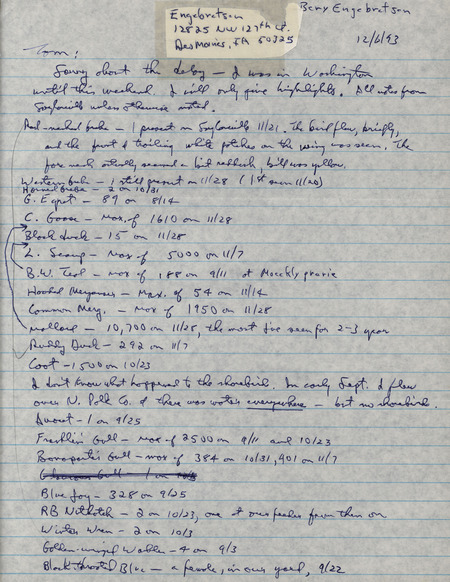 Bery Engebretsen
Engebretsen
12825 NW 127th Ct.
Des Moines, IA 50325
12/6/93
Tom:
Sorry about the delay – I was in Washington
until this weekend. I will only give highlights. All notes from
Saylorville unless otherwise noted.
Red-necked Grebe – 1 present on Saylorville 11/21. The bird flew, briefly,
and the front & trailing white patches on the wing was seen. The
neck – but reddish, bill was yellow.
Western Grebe – 1 still present on 11/28 (1st seen 11/20)
Horned Grebe – 2 on 10/31
G. Egret – 89 on 8/14
C. Goose – max. of 1610 on 11/28
Black duck – 15 on 11/28
L. Scaup – max of 5000 on 11/7
B.W. Teal – max of 188 on 9/11 at prairie
Hooded Merganser – Max. of 54 on 11/14
Common Merg. – max of 1950 on 11/28
mallard – 10,700 on 11/28, the most I've seen for 2-3 years
Ruddy Duck – 292 on 11/7
Coot – 1500 on 10/23
I don't know what happened to the shorebirds. In early Sept. I flew
over N. Polk Co. & there was water everywhere – but no shorebirds.
Avocet – 1 on 9/25
Franklin's Gull – max of 2500 on 9/11 and 10/23
Bonaparte's Gull – max of 384 on 10/31, 401 on 11/7
Blue Jay – 328 on 9/25
RB Nuthatch – 2 on 10/23, one at our feeder from then on
Winter Wren – 2 on 10/3
Golden-winged Warbler – 4 on 9/3
Black-throated Blue – a female, in our yard, 9/22